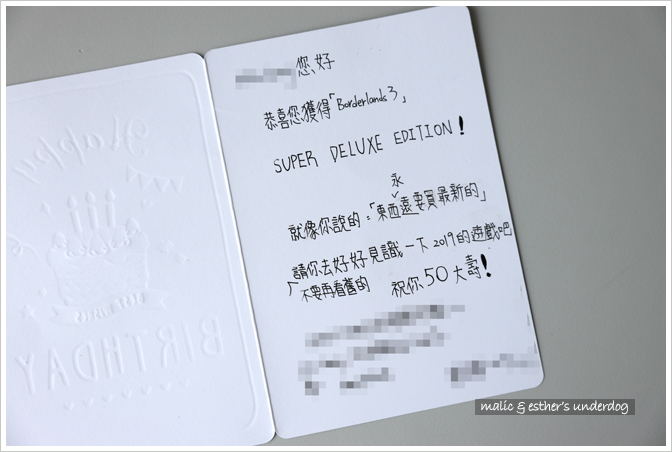 您好
恭喜您獲得「Borderlands 3」
SUPER DELUXE EDITION!
永
就像你說的:「東西遠要買最新的」
請你去好好見識一下2019的遊戲吧
不要再看舊的 祝你50大壽!
Happy
BIRTHDAY
malic & esther's underdog